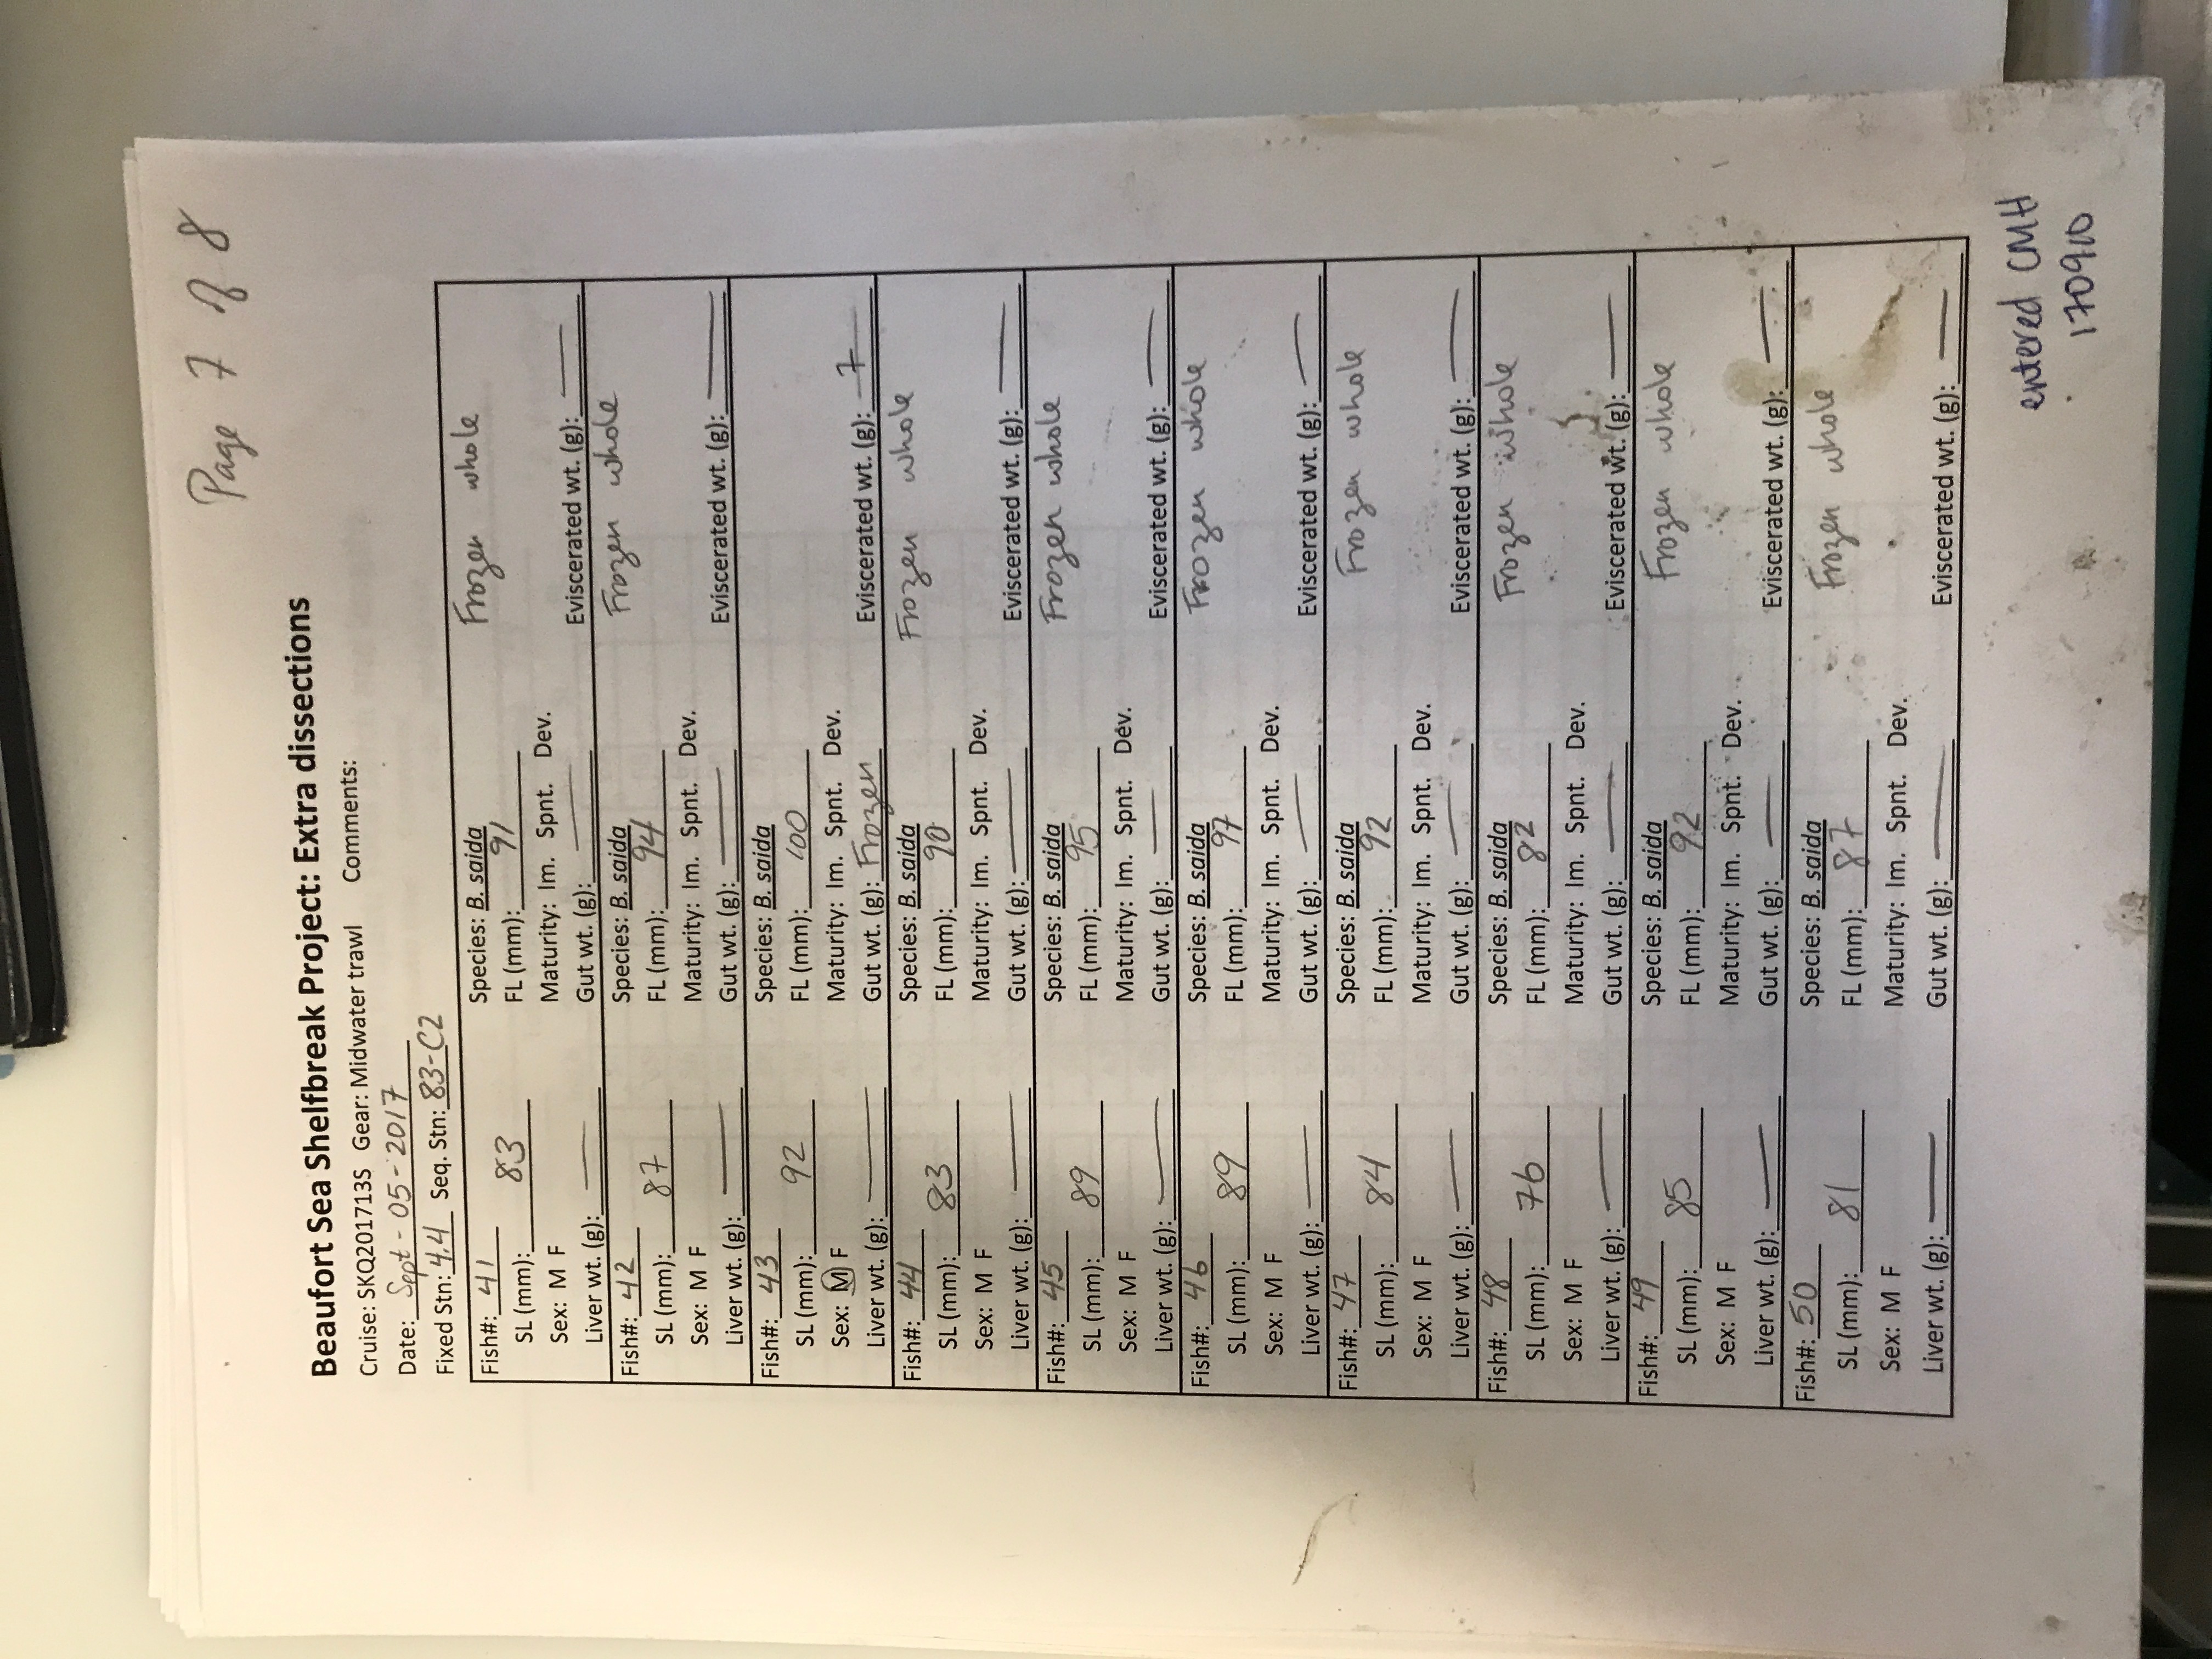 Page 7 of 8
Beaufort Sea Shelfbreak Project: Extra dissections
Cruise: SKQ201713S Gear: Midwater trawl Comments:
Date: Sept-05-2017
Fixed Stn: 4.4 Seq. Stn: 83-C2
Fish#: 41 Species: B. saida Frozen whole
SL (mm): 83 FL (mm): 91
Sex: M F Maturity: Im. Spnt. Dev.
Liver wt. (g): — Gut wt. (g): — Eviscerated wt. (g): —
Fish#: 42 Species: B. saida Frozen whole
SL (mm): 87 FL (mm): 94
Sex: M F Maturity: Im. Spnt. Dev.
Liver wt. (g): — Gut wt. (g): — Eviscerated wt. (g): —
Fish#: 43 Species: B. saida
SL (mm): 92 FL (mm): 100
Sex: M F Maturity: Im. Spnt. Dev.
Liver wt. (g): — Gut wt. (g): Frozen Eviscerated wt. (g): 7
Fish#: 44 Species: B. saida Frozen whole
SL (mm): 83 FL (mm): 90
Sex: M F Maturity: Im. Spnt. Dev.
Liver wt. (g): — Gut wt. (g): — Eviscerated wt. (g): —
Fish#: 45 Species: B. saida Frozen whole
SL (mm): 89 FL (mm): 95
Sex: M F Maturity: Im. Spnt. Dev.
Liver wt. (g): — Gut wt. (g): — Eviscerated wt. (g): —
Fish#: 46 Species: B. saida Frozen whole
SL (mm): 89 FL (mm): 97
Sex: M F Maturity: Im. Spnt. Dev.
Liver wt. (g): — Gut wt. (g): — Eviscerated wt. (g): —
Fish#: 47 Species: B. saida Frozen whole
SL (mm): 84 FL (mm): 92
Sex: M F Maturity: Im. Spnt. Dev.
Liver wt. (g): — Gut wt. (g): — Eviscerated wt. (g): —
Fish#: 48 Species: B. saida Frozen whole
SL (mm): 76 FL (mm): 82
Sex: M F Maturity: Im. Spnt. Dev.
Liver wt. (g): — Gut wt. (g): — Eviscerated wt. (g): —
Fish#: 49 Species: B. saida Frozen whole
SL (mm): 85 FL (mm): 92
Sex: M F Maturity: Im. Spnt. Dev.
Liver wt. (g): — Gut wt. (g): — Eviscerated wt. (g): —
Fish#: 50 Species: B. saida Frozen whole
SL (mm): 81 FL (mm): 87
Sex: M F Maturity: Im. Spnt. Dev.
Liver wt. (g): — Gut wt. (g): — Eviscerated wt. (g): —
entered CMH
170910